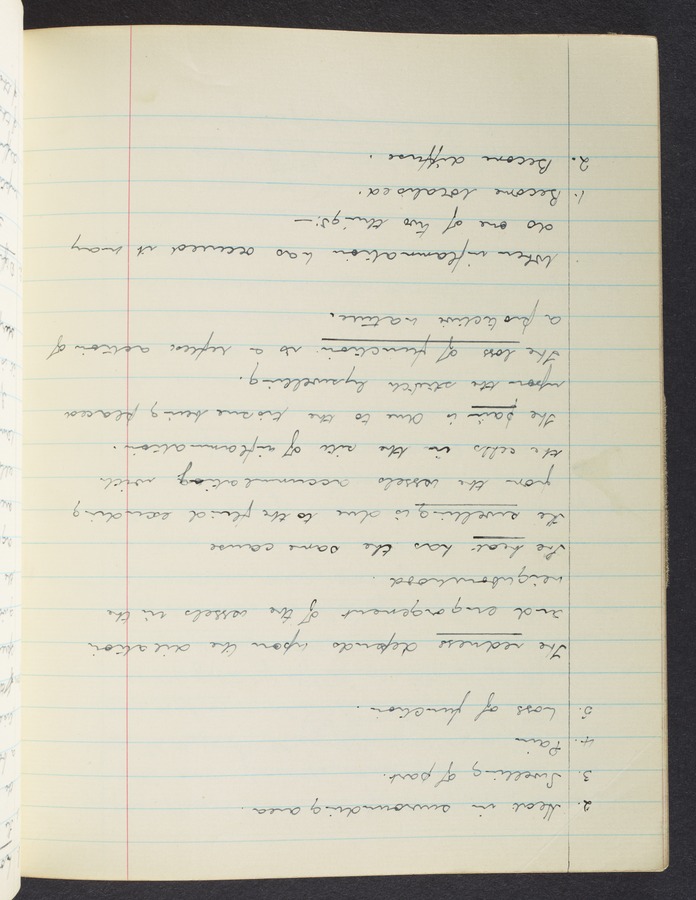 2. Heat in surrounding area.
3. Swelling of part.
4. Pain
5. Loss of function.
The redness depends upon the dilation
and engorgement of the vessels in the
neighbourhood.
The heat has the same cause
The swelling is due to the fluid exuding
from the vessels accumulating with
the cells in the site of inflammation.
The pain is due to the tissue being placed
upon the stretch by swelling.
The loss of function is a reflex action of
a protective nature.
When inflammation has occured it may
do one of two things:—
1. Become localised.
2. Become diffuse.